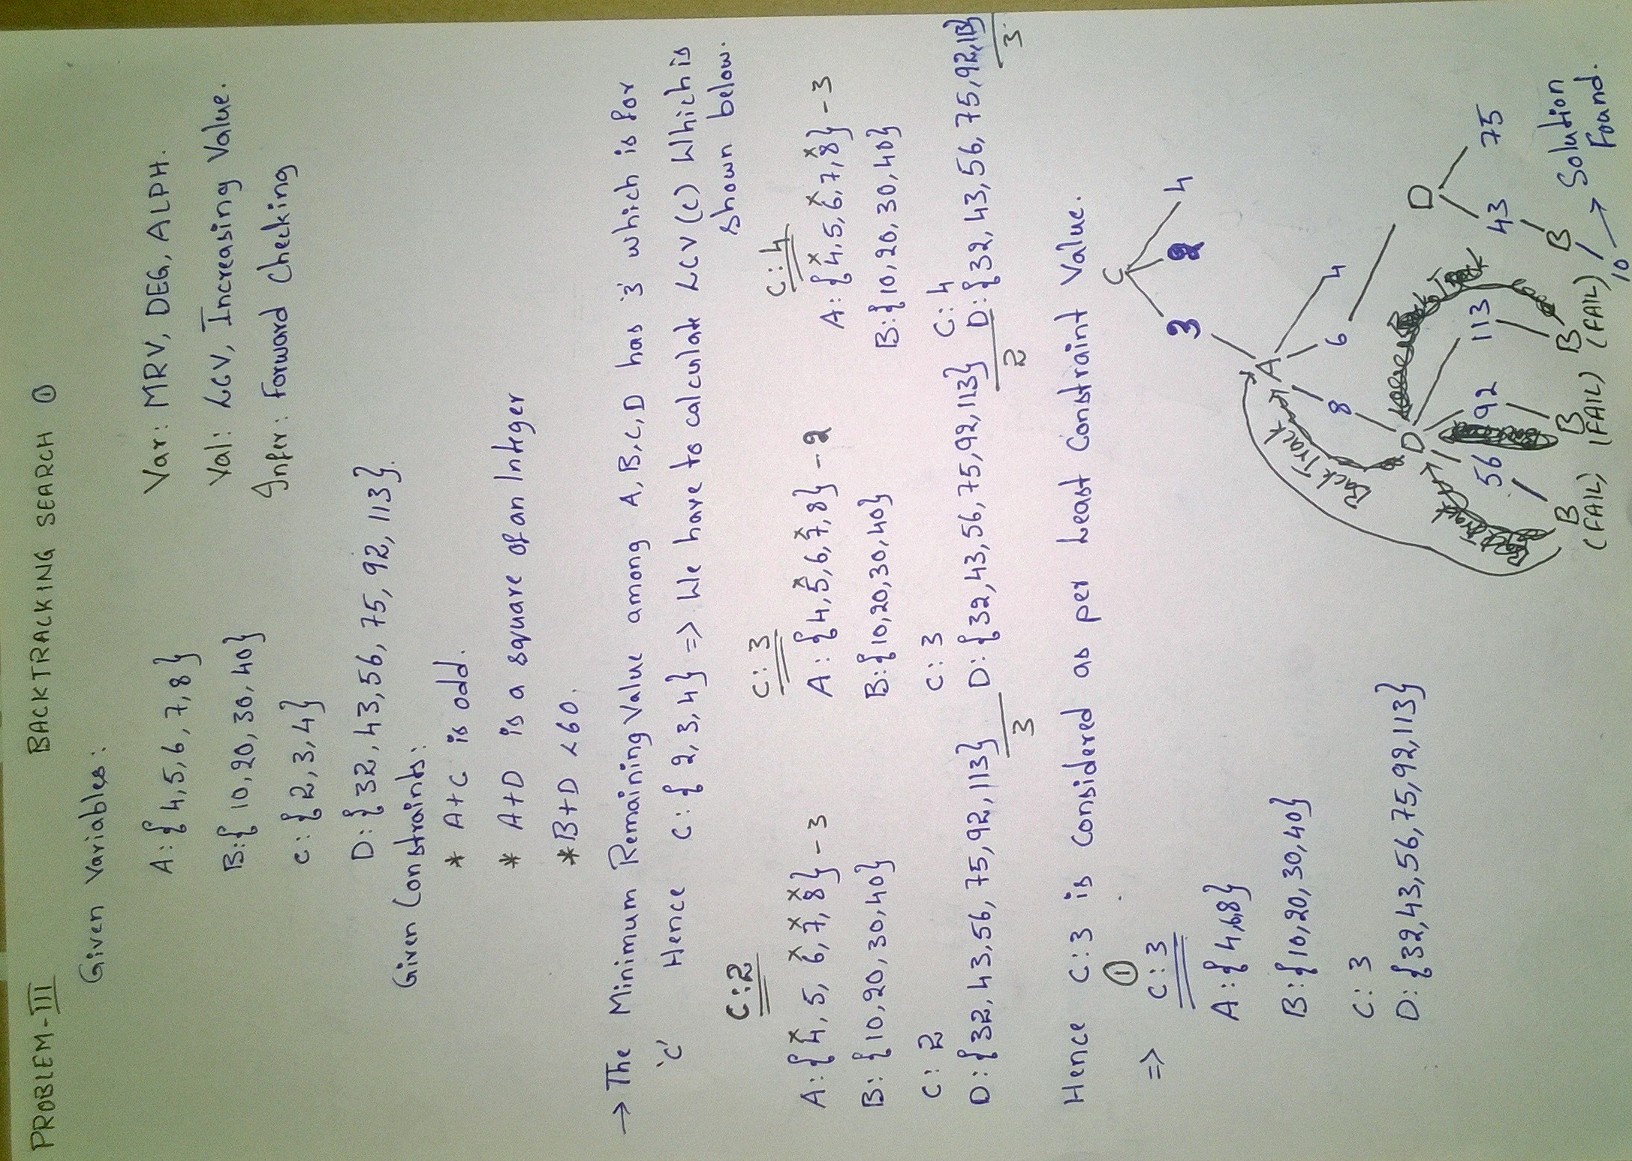 PROBLEM-III BACKTRACKING SEARCH ①
Given Variables:
A:{4,5,6,7,8}
Var: MRV, DEG, ALPH.
B:{10,20,30,40}
Val: LCV, Increasing Value.
C:{2,3,4}
Infer: Forward Checking
D:{32,43,56,75,92,113}.
Given Constraints:
* A+C is odd.
* A+D is a square of an Integer
* B+D <60.
→ The Minimum Remaining Value among A,B,C,D has '3' which is for
'C' Hence C:{2,3,4} => We have to calculate LCV(C) Which is
shown below.
C:2
A:{4,5,6,7,8} - 3
B:{10,20,30,40}
C: 2
D:{32,43,56,75,92,113}
3
C: 3
A:{4,5,6,7,8} - 2
B:{10,20,30,40}
C: 3
D:{32,43,56,75,92,113}
2
C:4
A:{4,5,6,7,8} - 3
B:{10,20,30,40}
C:4
D:{32,43,56,75,92,113}
3
Hence C:3 is Considered as per Least Constraint Value.
①
=> C:3
A:{4,6,8}
B:{10,20,30,40}
C: 3
D:{32,43,56,75,92,113}
C
3 2 4
A
BackTrack
8 6 4
D D
BackTrack
56 92 113 43 75
B B B B
(FAIL) (FAIL) (FAIL)
10 → Solution
Found.